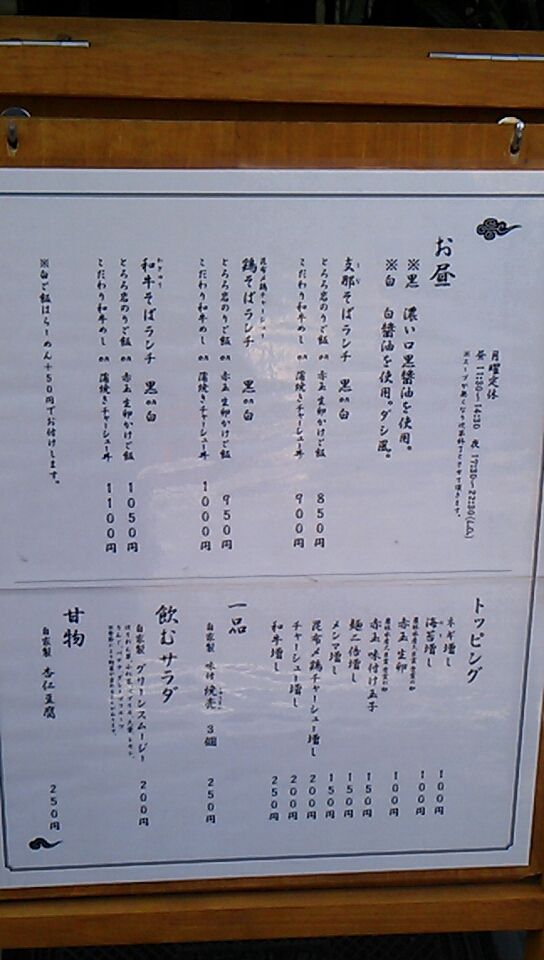 お昼
月曜定休
昼 11:30〜14:30 夜 17:30〜22:30(L.O.)
※スープが無くなり次第終了とさせて頂きます。
※黒 濃い口黒醬油を使用。
※白 白醬油を使用。ダシ風。
支那そばランチ 黒or白
とろろ岩のりご飯 or 赤玉生卵かけご飯 850円
こだわり和牛めし or 蒲焼きチャーシュー丼 900円
昆布〆鶏チャーシュー
鶏そばランチ 黒or白
とろろ岩のりご飯 or 赤玉生卵かけご飯 950円
こだわり和牛めし or 蒲焼きチャーシュー丼 1000円
和牛そばランチ 黒or白
とろろ岩のりご飯 or 赤玉生卵かけご飯 1050円
こだわり和牛めし or 蒲焼きチャーシュー丼 1100円
※白ご飯はらーめん+50円でお付けします。
トッピング
ネギ増し 100円
海苔増し 100円
赤玉生卵 100円
赤玉味付け玉子 150円
麺二倍増し 150円
メンマ増し 150円
昆布〆鶏チャーシュー増し 200円
チャーシュー増し 200円
和牛増し 250円
一品
自家製 味付焼売 3個 250円
飲むサラダ
自家製 グリーンスムージー 200円
甘物
自家製 杏仁豆腐 250円